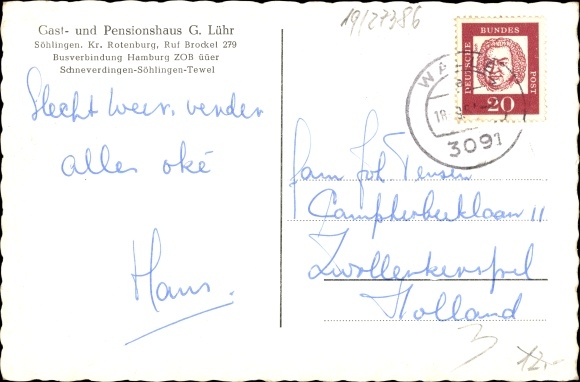 Gast- und Pensionshaus G. Lühr
Söhlingen. Kr. Rotenburg, Ruf Brockel 279
Busverbindung Hamburg ZOB üüer
Schneverdingen-Söhlingen-Tewel
19/27386
DEUTSCHE BUNDESPOST
20
WA
18
3091
Slecht weer. verder
alles oké
Hans.
Fam Joh Jensen
Campherbeeklaan 11
Zwollerkerspel
Holland
3
12,-